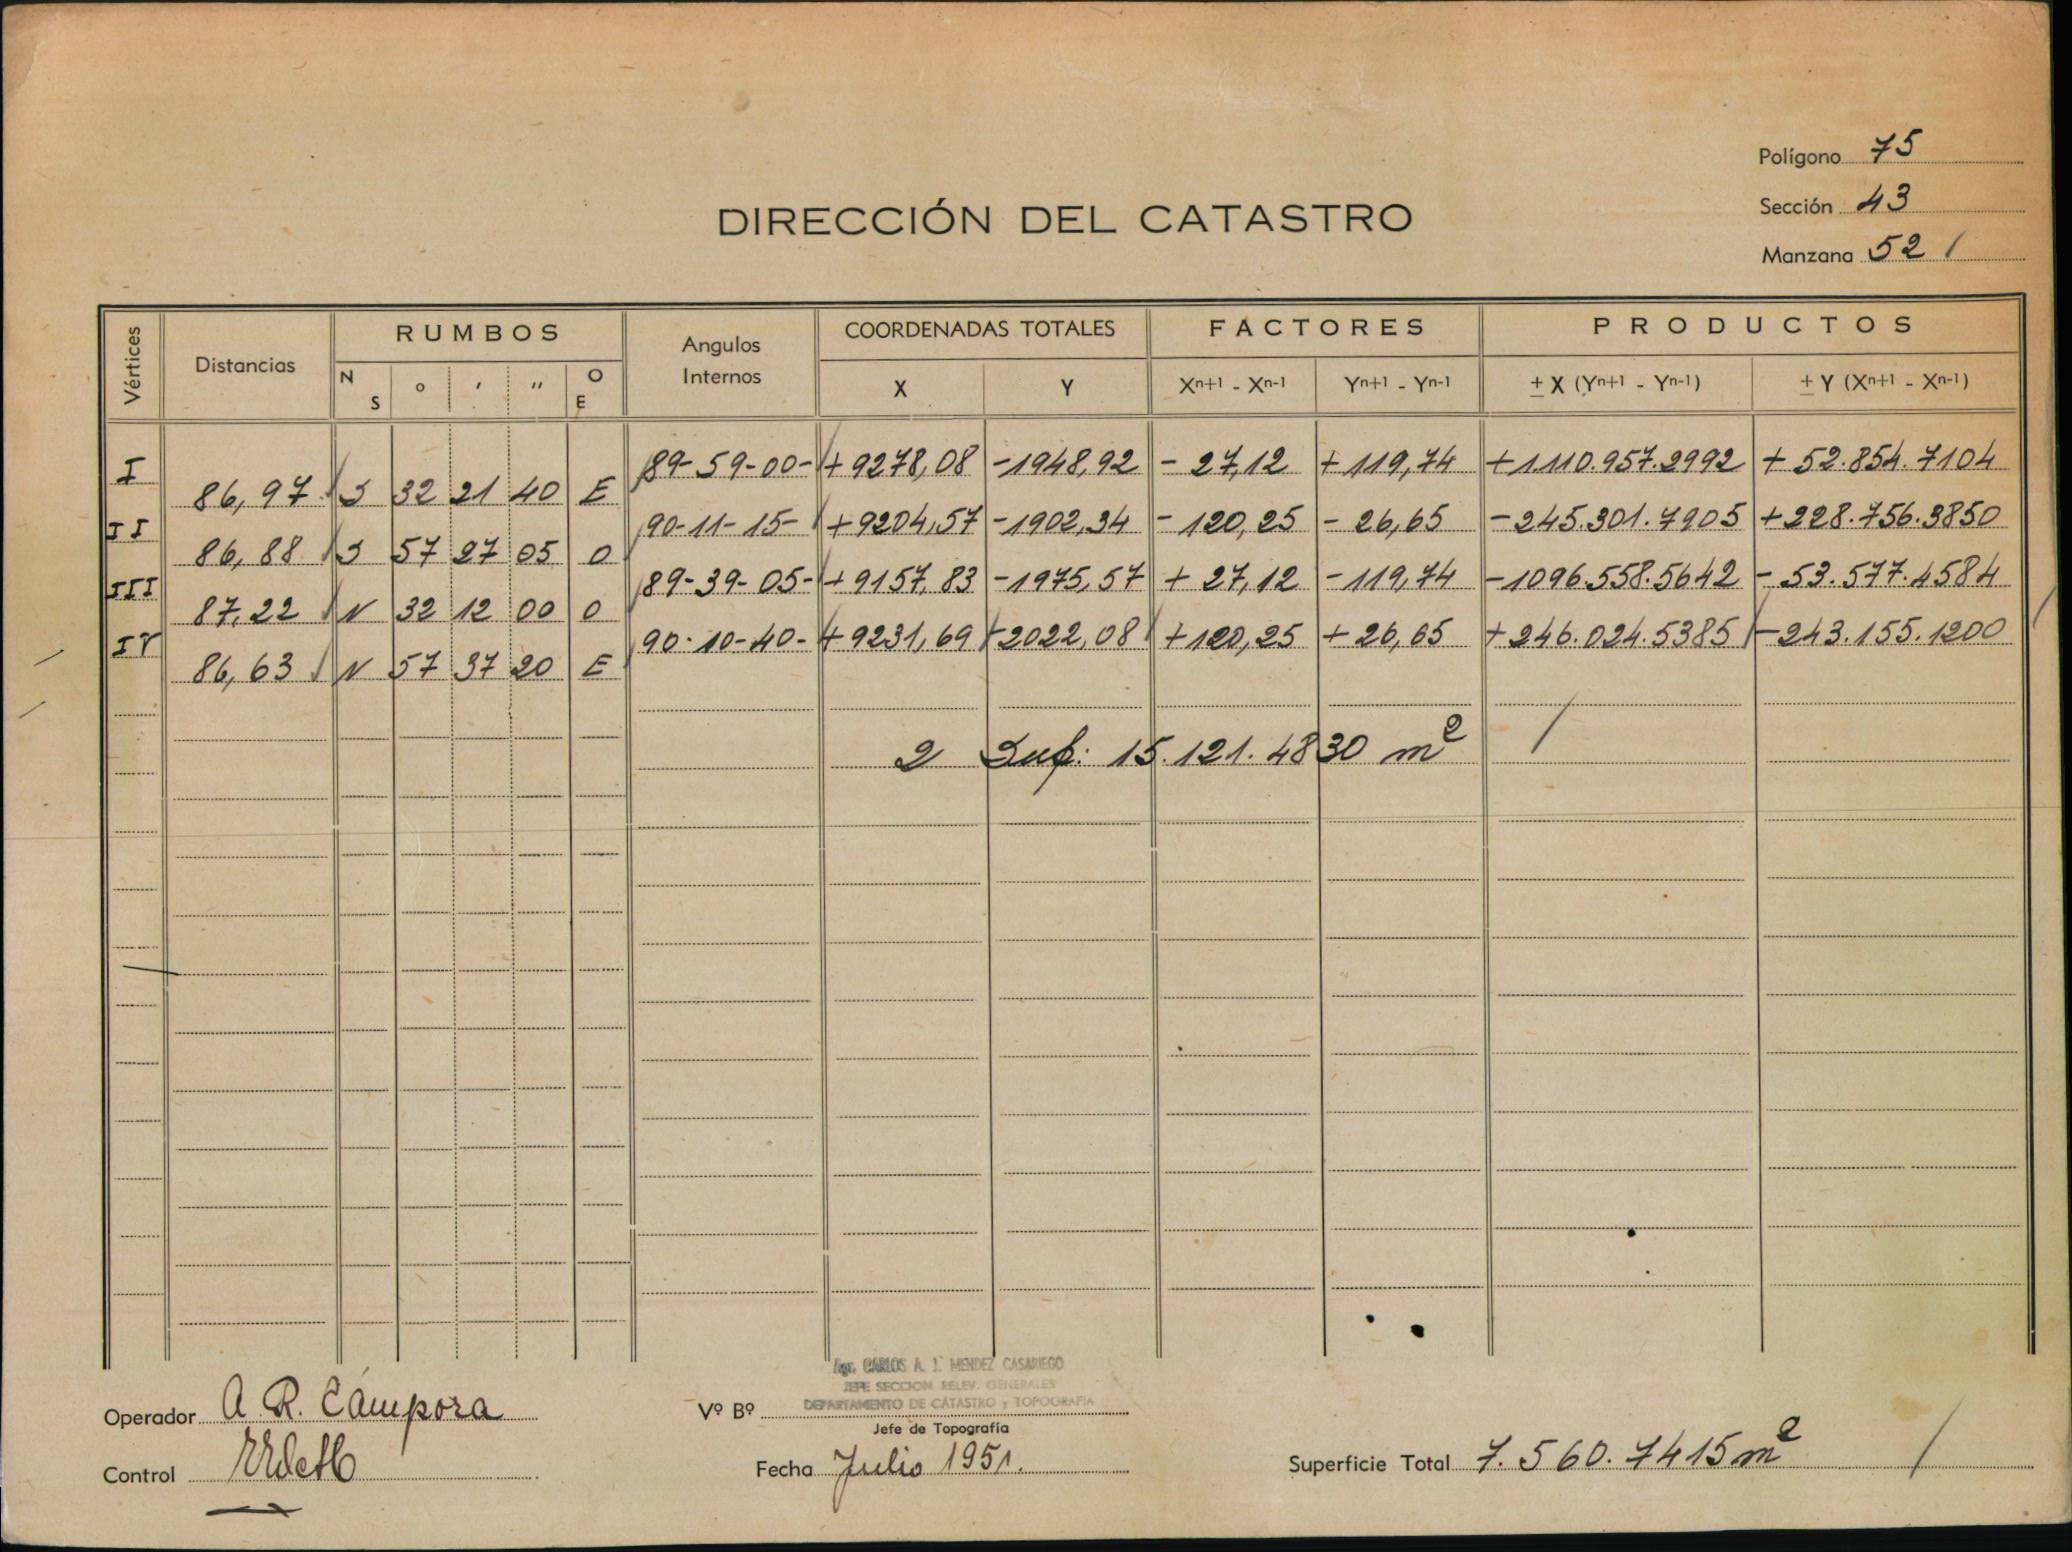 Polígono 75
Sección 43
Manzana 52 /
DIRECCIÓN DEL CATASTRO
Vértices Distancias RUMBOS Angulos Internos COORDENADAS TOTALES FACTORES PRODUCTOS
N S o ' '' O E X Y Xn+1 - Xn-1 Yn+1 - Yn-1 ± X (Yn+1 - Yn-1) ± Y (Xn+1 - Xn-1)
I 89-59-00- +9278,08 -1948,92 - 27,12 +119,74 +1110.957.2992 + 52.854.7104
86,97 S 32 21 40 E
II 90-11-15- +9204,57 -1902,34 - 120,25 - 26,65 -245.301.7905 +228.756.3850
86,88 S 57 27 05 O
III 89-39-05- +9157,83 -1975,57 + 27,12 -119,74 -1096.558.5642 - 53.577.4584
87,22 N 32 12 00 O
IV 90-10-40- +9231,69 -2022,08 +120,25 + 26,65 +246.024.5385 -243.155.1200
86,63 N 57 37 20 E
2 Sup: 15.121.4830 m2 /
Agr. CARLOS A. J. MENDEZ CASARIEGO
JEFE SECCION RELEV. GENERALES
DEPARTAMENTO DE CATASTRO y TOPOGRAFIA
Operador A. R. Cámpora
Vº Bº
Jefe de Topografía
Control
Fecha Julio 1951.
Superficie Total 7.560.7415 m2 /